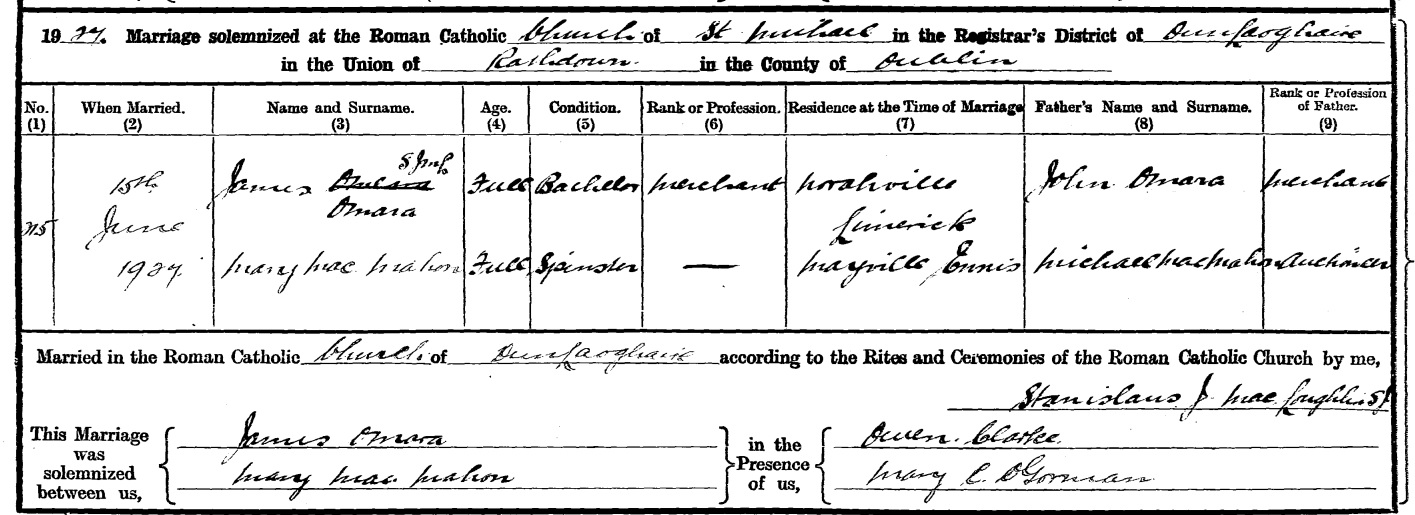 19 27. Marriage solemnized at the Roman Catholic Church of St Michael in the Registrar's District of Dunlaoghaire
in the Union of Rathdown. in the County of Dublin
No. (1) When Married. (2) Name and Surname. (3) Age. (4) Condition. (5) Rank or Profession. (6) Residence at the Time of Marriage (7) Father's Name and Surname. (8) Rank or Profession of Father. (9)
15th James Omeara Omara Full Bachelor Merchant Norahville Limerick John Omara Merchant
June
1927. Mary Mac Mahon Full Spinster — Maryville Ennis Michael MacMahon Auctioneer
Married in the Roman Catholic Church of Dunlaoghaire according to the Rites and Ceremonies of the Roman Catholic Church by me,
Stanislaus J. Mac Loughlin SJ.
This Marriage was solemnized between us,
James Omara
Mary Mac Mahon
in the Presence of us,
Owen Clarke
Mary C. O'Gorman